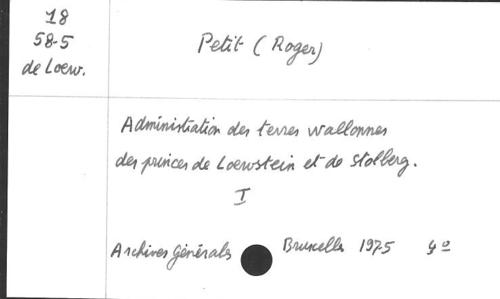 18
58-5
de Loew.
Petit (Roger)
Administration des terres wallonnes
des princes de Loewstein et de Stolberg.
I
Archives Générales Bruxelles 1975 4º